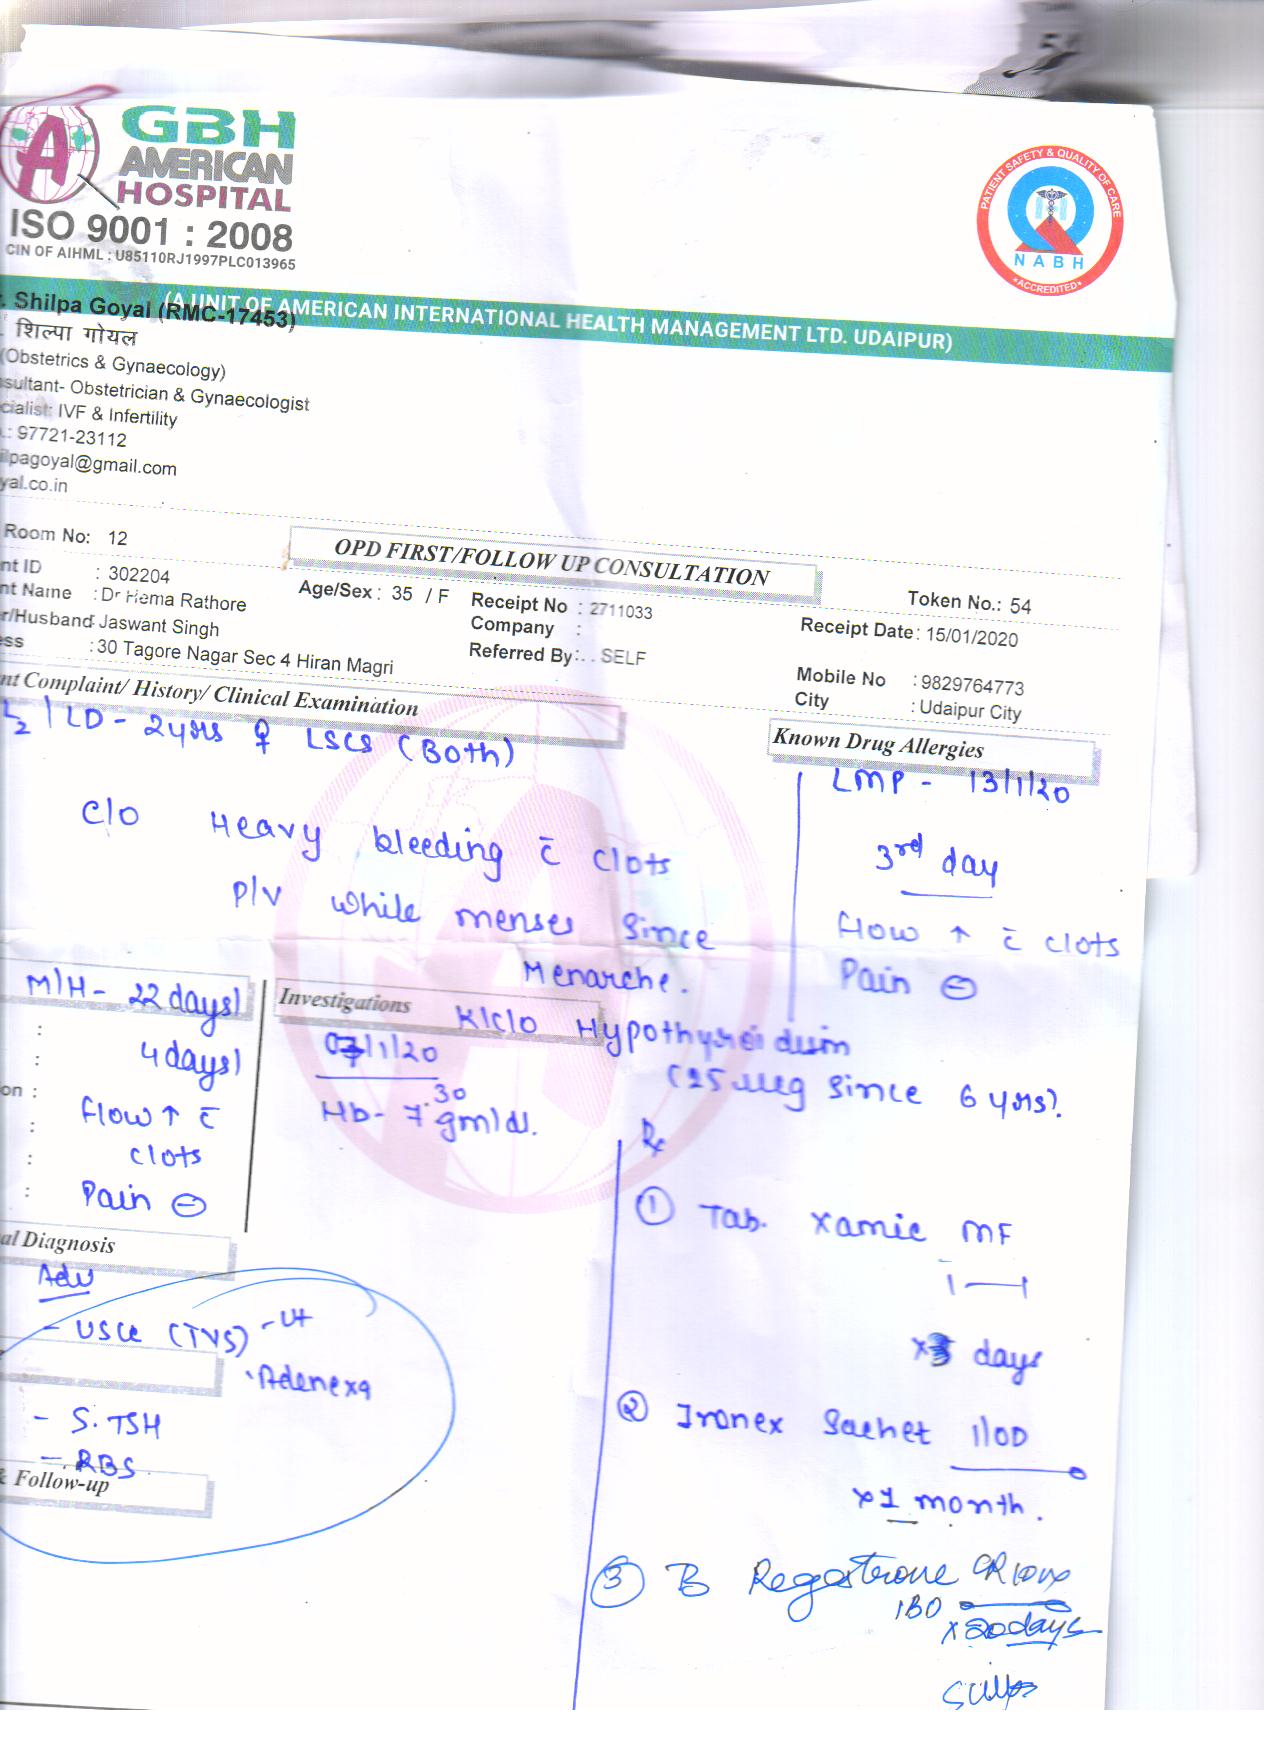 GBH
AMERICAN
HOSPITAL
ISO 9001 : 2008
CIN OF AIHML : U85110RJ1997PLC013965
PATIENT SAFETY & QUALITY OF CARE
NABH
*ACCREDITED*
(A UNIT OF AMERICAN INTERNATIONAL HEALTH MANAGEMENT LTD. UDAIPUR)
. Shilpa Goyal (RMC-17453)
. शिल्पा गोयल
(Obstetrics & Gynaecology)
nsultant- Obstetrician & Gynaecologist
cialist: IVF & Infertility
.: 97721-23112
ilpagoyal@gmail.com
yal.co.in
Room No: 12
OPD FIRST/FOLLOW UP CONSULTATION
nt ID : 302204
Age/Sex : 35 / F
Receipt No : 2711033
Token No.: 54
nt Name : Dr Hema Rathore
Company :
Receipt Date : 15/01/2020
er/Husband : Jaswant Singh
Referred By : . . SELF
Mobile No : 9829764773
ess : 30 Tagore Nagar Sec 4 Hiran Magri
City : Udaipur City
nt Complaint/ History/ Clinical Examination
L2 / LD - 2yrs ♀ LSCS (Both)
Known Drug Allergies
LMP - 13/1/20
C/O Heavy bleeding c̄ clots
3rd day
P/V while menses since
Flow ↑ c̄ clots
Menarche.
Pain ⊖
M/H - 22 days)
Investigations
K/C/O Hypothyroidism
4 days)
07/1/20
(25 mcg since 6 yrs).
on :
Flow ↑ c̄
Hb - 7.30 gm/dl.
clots
Rx
Pain ⊖
① Tab. Xamic MF
1—1
al Diagnosis
Adv
- USG (TVS) - Ut
x days
· Adenexa
② Ironex Sachet 1/OD
- S. TSH
- RBS
x 1 month.
& Follow-up
③ Regestrone CR 10mg
1BD
x 20 days